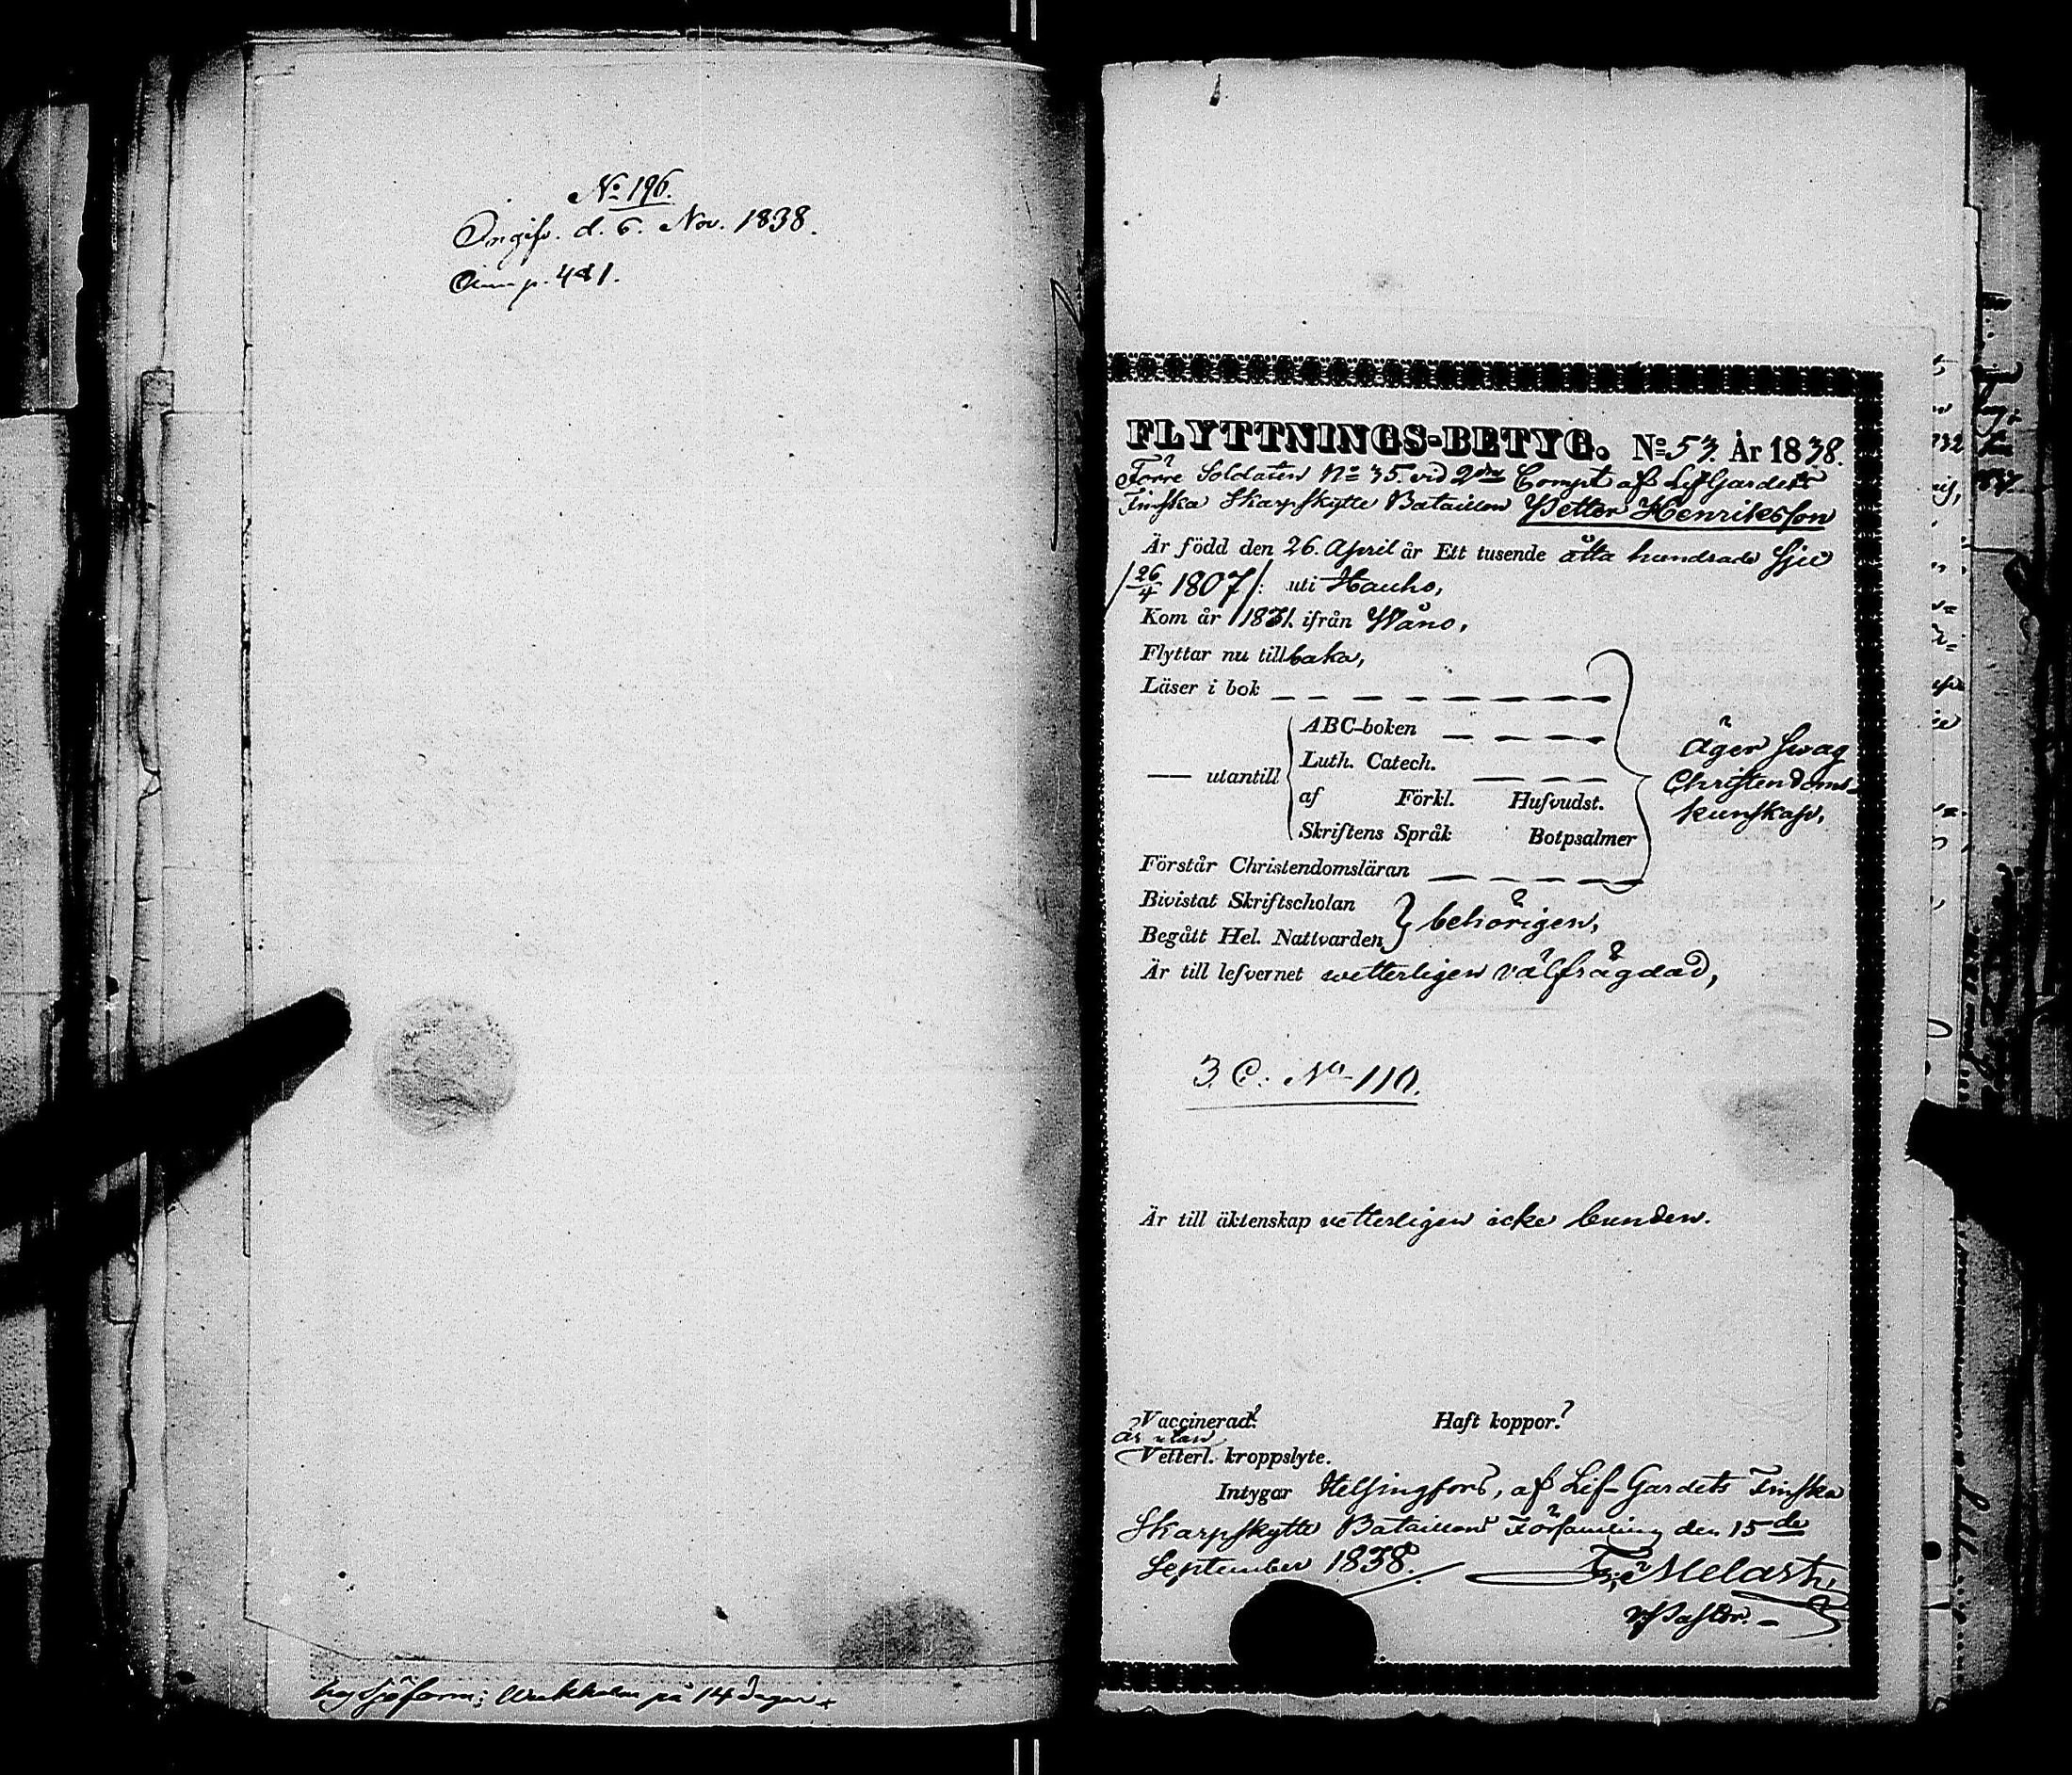 No 196.
Ingifv. d. 6. Nov. 1838.
p. 441.
på 14 dagar
FLYTTNINGS-BETYG. No 53. År 1838.
Förre Soldaten No 35. vid 2dra Compt af LifGardets
Finska Skarpskytte Bataillon Petter Henriksson
Är född den 26. April år Ett tusende åtta hundrade sju
/26/4 1807/: uti Hauho,
Kom år 1831. ifrån Wåno,
Flyttar nu tillbaka,
Läser i bok
ABC-boken
Luth. Catech.
— utantill
af Förkl. Hufvudst.
Skriftens Språk Botpsalmer
Äger svag
Christendoms-
kunskap,
Förstår Christendomsläran
Bivistat Skriftscholan
Begått Hel. Nattvarden
behörigen,
Är till lefvernet wetterligen välfrägdad,
3. C. No 110.
Är till äktenskap vetterligen icke bunden.
Vaccinerad? Haft koppor.?
Är utan
Vetterl. kroppslyte.
Intygar Helsingfors, af Lif-Gardets Finska
Skarpskytte Bataillons Församling den 15de
September 1838.
Melart,
v. Pastor.